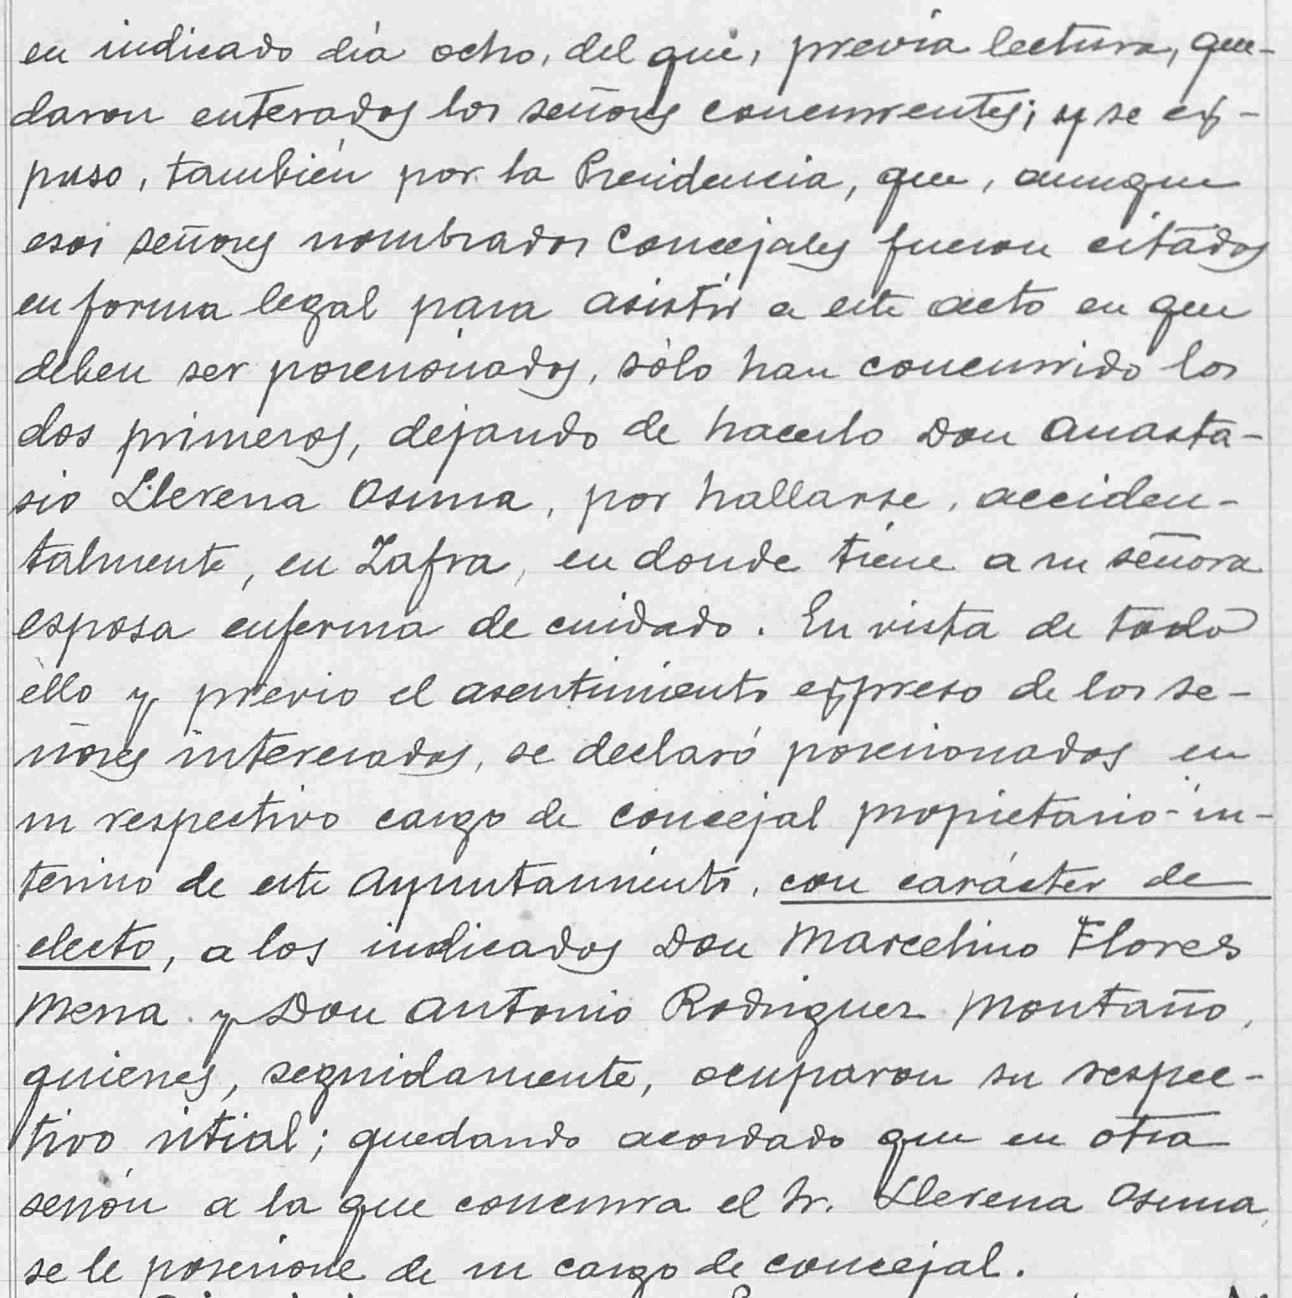 en indicado día ocho, del que, previa lectura, que-
daron enterados los señores concurrentes; y se ex-
puso, también por la Presidencia, que, aunque
esos señores nombrados Concejales fueron citados
en forma legal para asistir a este acto en que
deben ser posesionados, sólo han concurrido los
dos primeros, dejando de hacerlo Don Anasta-
sio Llerena Osuna, por hallarse, acciden-
talmente, en Zafra, en donde tiene a su señora
esposa enferma de cuidado. En vista de todo
ello y previo el asentimiento expreso de los se-
ñores interesados, se declaró posesionados en
su respectivo cargo de concejal propietario-in-
terino de este Ayuntamiento, con carácter de
electo, a los indicados Don Marcelino Flores
Mena y Don Antonio Rodriguez Montaño,
quienes, seguidamente, ocuparon su respec-
tivo sitial; quedando acordado que en otra
sesión a la que concurra el Sr. Llerena Osuna,
se le posesione de su cargo de concejal.